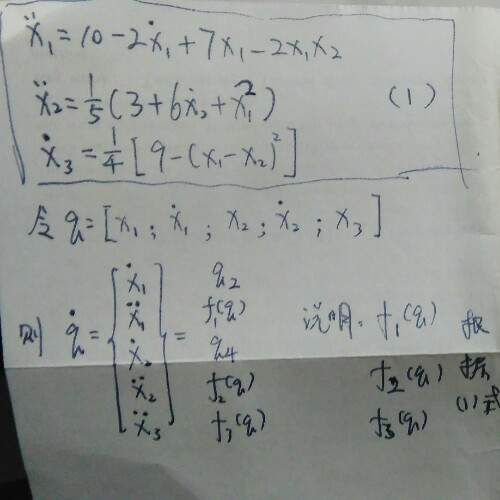 ẍ₁=10-2ẋ₁+7x₁-2x₁x₂
ẍ₂=1/5(3+6ẋ₂+x₁²) (1)
ẋ₃=1/4[9-(x₁-x₂)²]
令 q=[x₁; ẋ₁; x₂; ẋ₂; x₃]
则 q̇={ẋ₁ ẍ₁ ẋ₂ ẍ₂ ẍ₃}= q₂ f₁(q) q₄ f₂(q) f₃(q)
说明: f₁(q) f₂(q) f₃(q) 根据(1)式